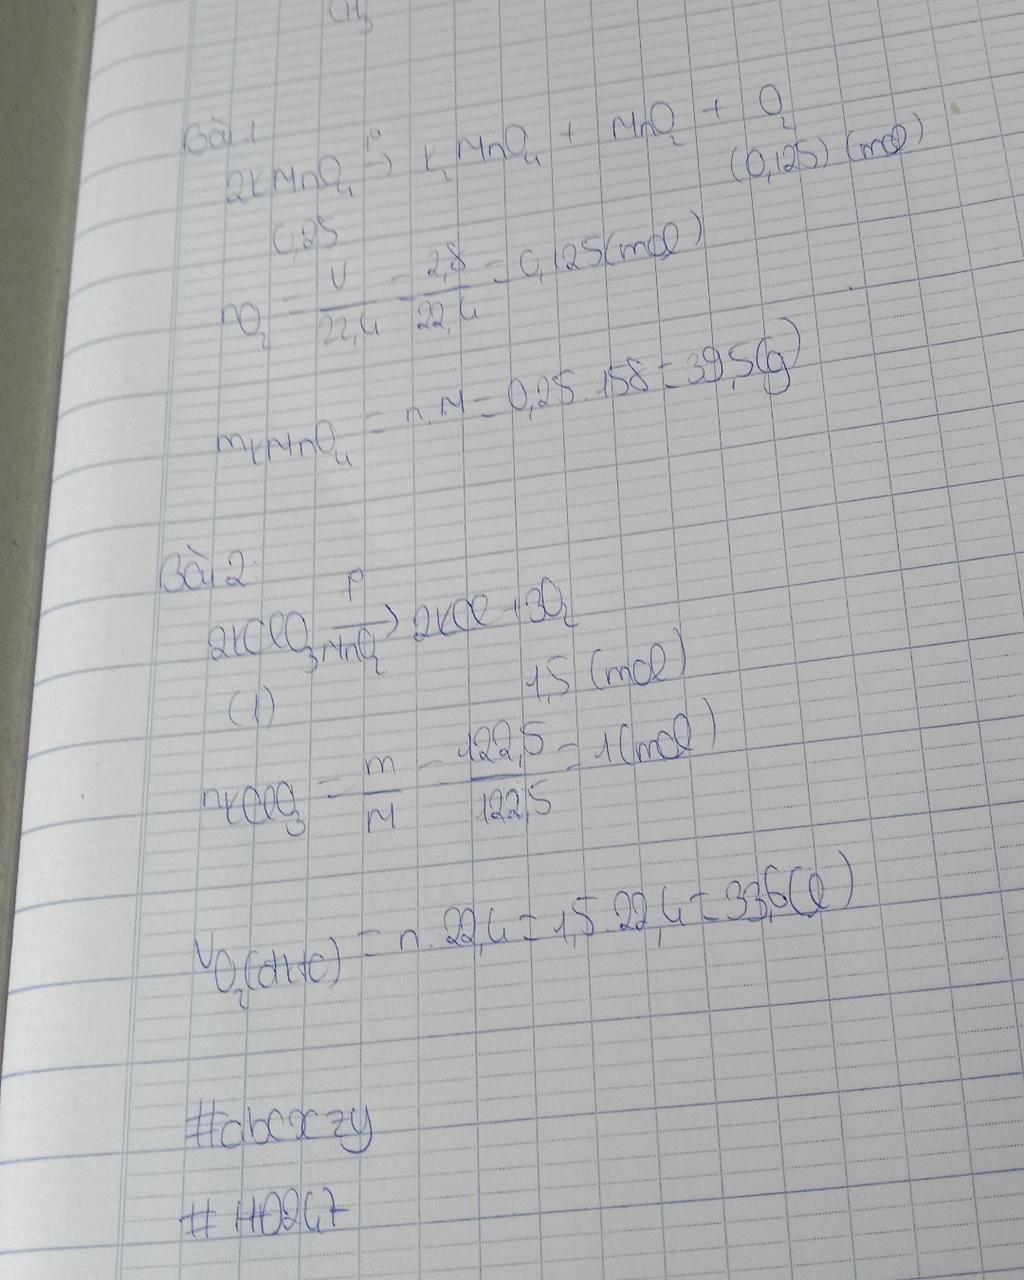 Bài 1
2KMnO₄ →(t°) K₂MnO₄ + MnO₂ + O₂
0,25 (0,125) (mol)
nO₂ = V/22,4 = 2,8/22,4 = 0,125(mol)
mKMnO₄ = n.M = 0,25.158 = 39,5(g)
Bài 2
2KClO₃ →(t°, MnO₂) 2KCl + 3O₂
(1) 1,5 (mol)
nKClO₃ = m/M = 122,5/122,5 = 1(mol)
VO₂(đktc) = n.22,4 = 1,5.22,4 = 33,6(l)
#abcxzy